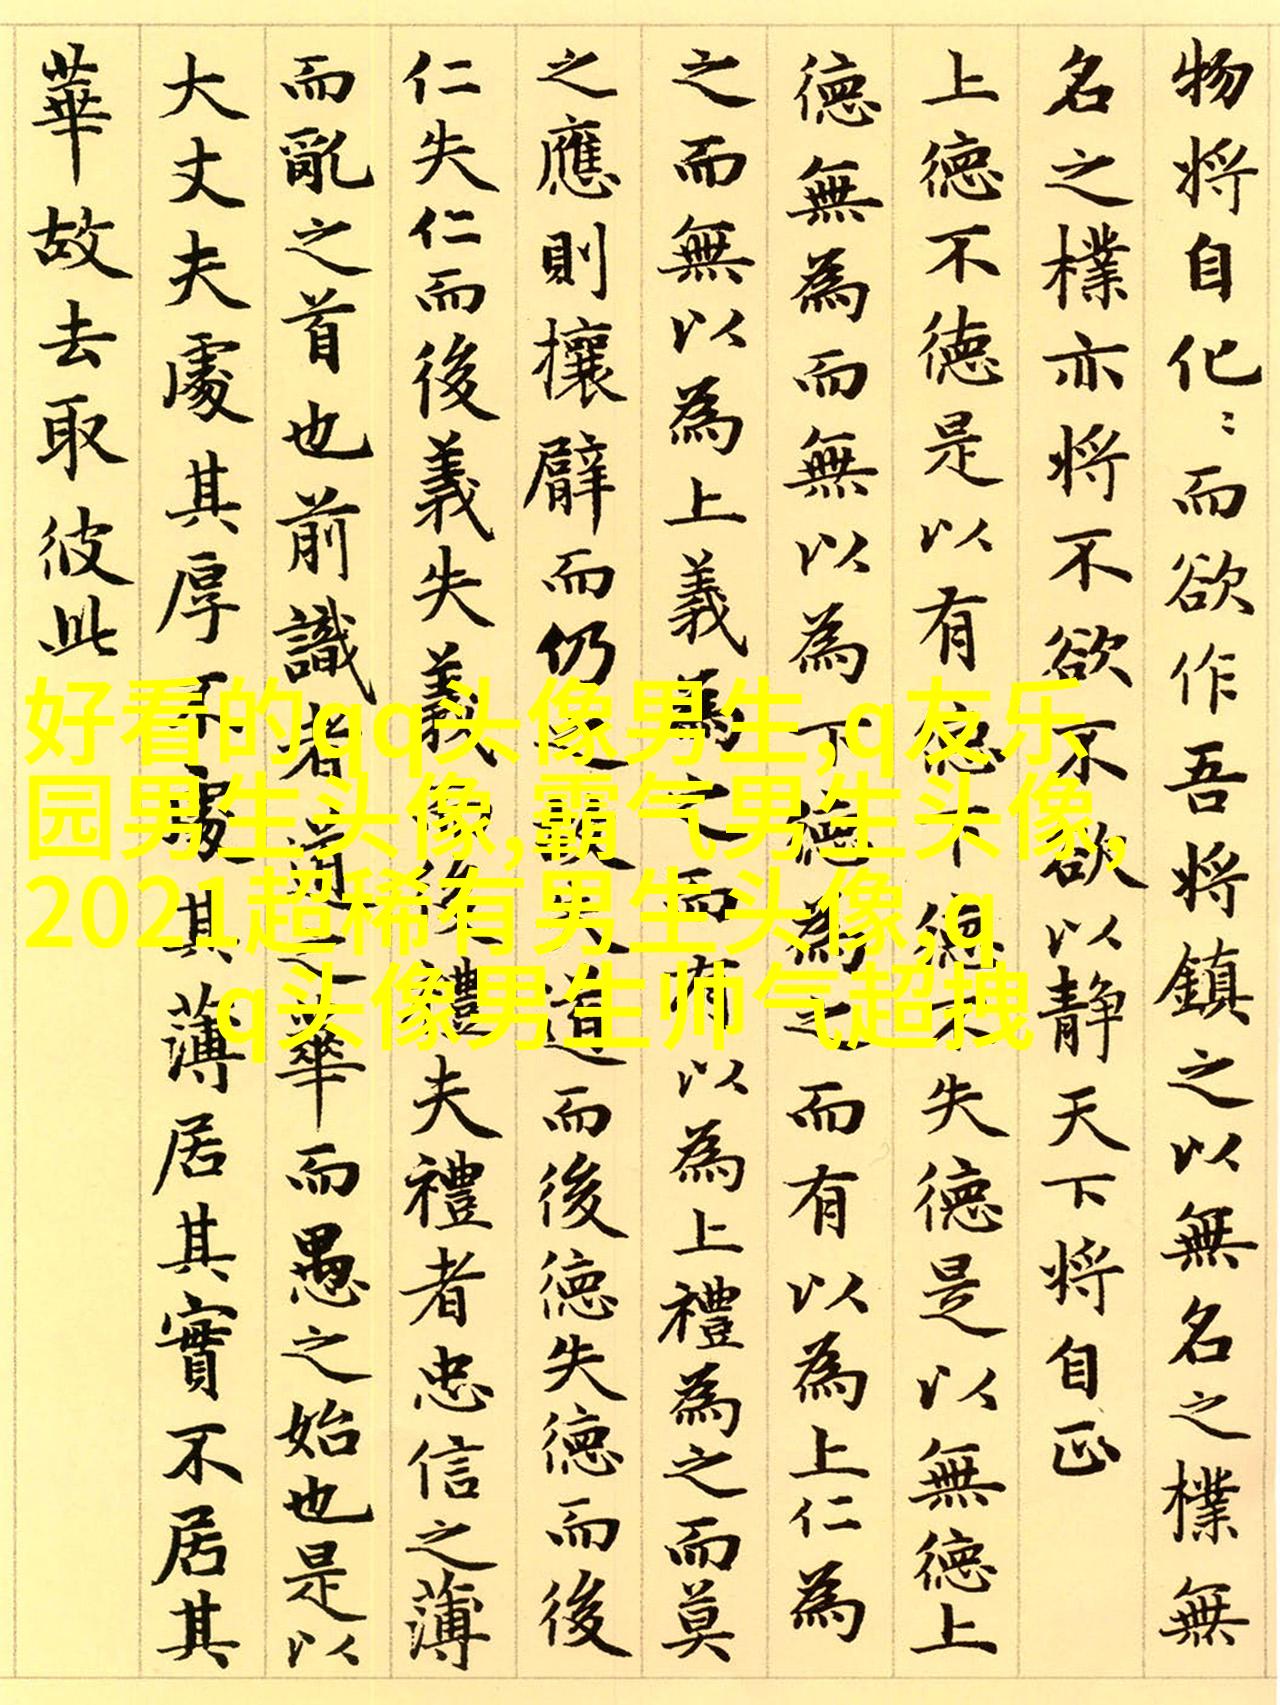 物将自化〻而欲作吾将鎮之以無名之樸無
名之樸亦将不欲不欲以静天下将自正
上徳不徳是以有徳下徳不失徳是以無徳上
徳無為而無以為下徳為之而有以為上仁為
之而無以為上義為之而有以為上禮為之而莫
之應則攘臂而仍之故失道而後徳失徳而後
仁失仁而後義失義而後禮夫禮者忠信之薄
而亂之首也前識者道之華而愚之始也是以
大丈夫處其厚不處其薄居其實不居其
華故去取彼此
好看的qq头像男生,q友乐
园男生头像,霸气男生头像,
2021超稀有男生头像,q
q头像男生帅气超拽